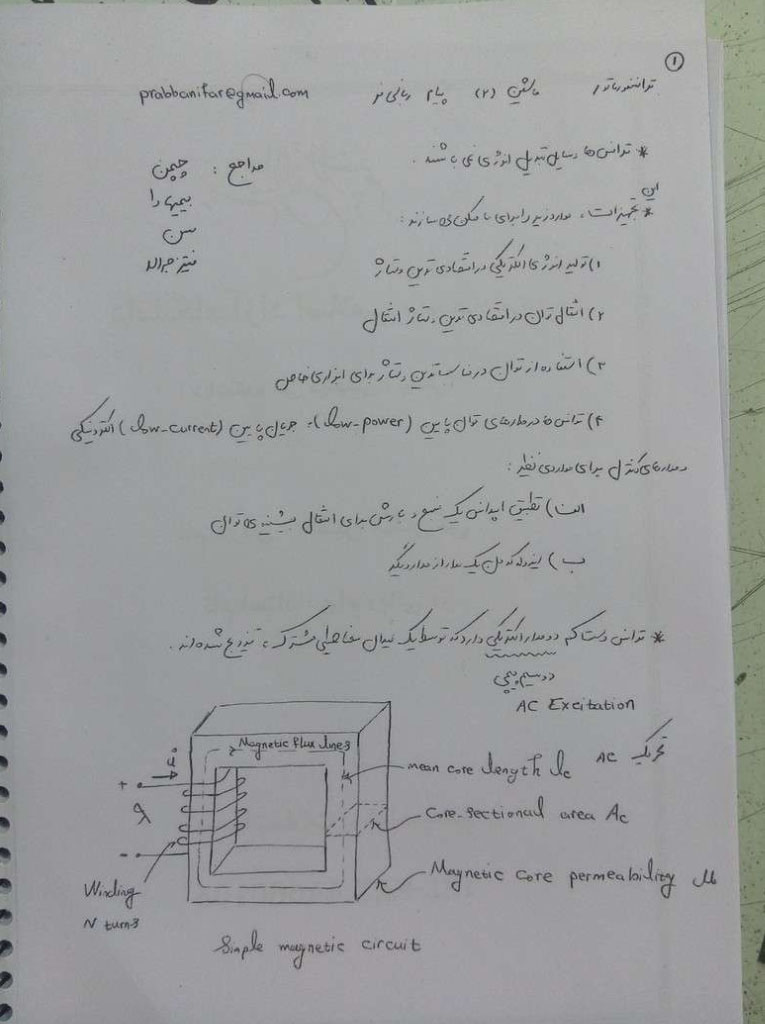 ۱
ترانسفورماتور ماشین (۲) پیام ربانی فر prabbanifar@gmail.com
* ترانس ها وسایل تبدیل انرژی نمی باشند.
مراجع : چپمن
بیمبهارا
سن
فیتز جرالد
* این تجهیزات، موارد زیر را برای ما ممکن می سازند:
۱) تولید انرژی الکتریکی در اقتصادی ترین ولتاژ
۲) انتقال توان در اقتصادی ترین ولتاژ انتقال
۳) استفاده از توان در مناسبترین ولتاژ برای ابزاری خاص
۴) ترانس ها در مدارهای توان پایین (low-power)، جریان پایین (low-current) الکترونیکی
و مدارهای کنترل برای مواردی نظیر:
الف) تطبیق امپدانس یک منبع و بارش برای انتقال بیشینه ی توان
ب) ایزوله کردن یک مدار از مدار دیگر
* ترانس دست کم دو مدار الکتریکی دارد که توسط یک میدان مغناطیسی مشترک، تزویج شده اند.
دو سیم پیچی
AC Excitation
تحریک AC
Magnetic flux lines
i
mean core length lc
+
λ
Core-sectional area Ac
-
Magnetic core permeability μ
Winding
N turns
Simple magnetic circuit